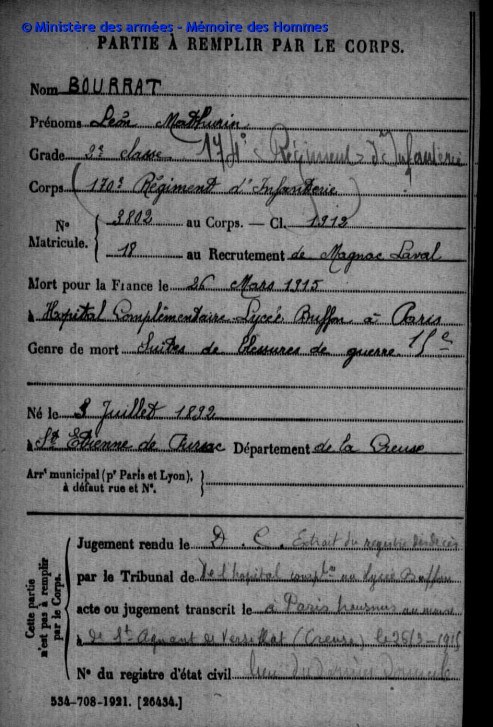 © Ministère des armées - Mémoire des Hommes
PARTIE À REMPLIR PAR LE CORPS.
Nom BOURRAT
Prénoms Léon Mathurin
Grade 2e classe 174e Régiment d'Infanterie
Corps (170e Régiment d'Infanterie)
N° Matricule. { 3802 au Corps. — Cl. 1912
18 au Recrutement de Magnac Laval
Mort pour la France le 26 Mars 1915
à Hopital Complémentaire Lycée Buffon à Paris
Genre de mort Suites de blessures de guerre 15e
Né le 8 Juillet 1892
à St Etienne de Fursac Département de la Creuse
Arrt municipal (pr Paris et Lyon), }
à défaut rue et N°.
Cette partie n'est pas à remplir par le Corps.
Jugement rendu le D. C. Extrait du registre des décès
par le Tribunal de de l'hopital compl. au Lycée Buffon
acte ou jugement transcrit le à Paris
à de St Agnant de Versillat (Creuse) le 25/3-1915
N° du registre d'état civil
534-708-1921. [26434.]